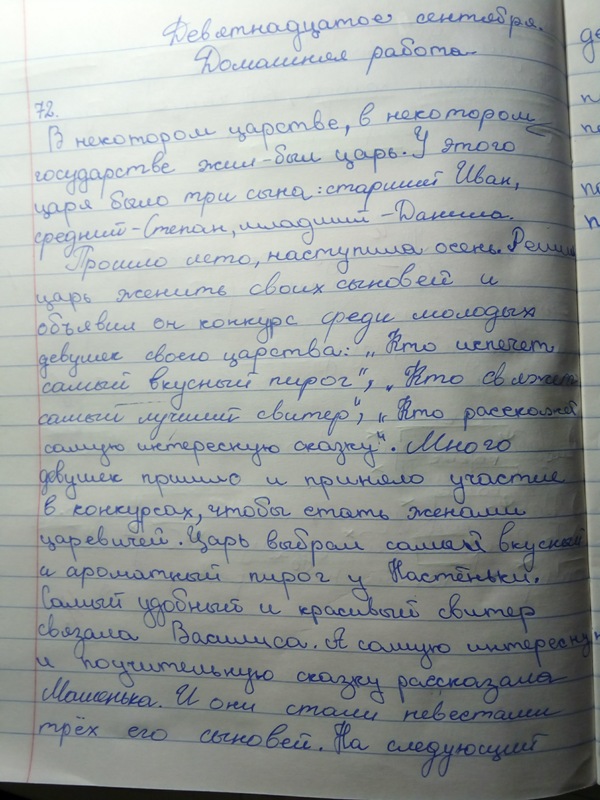 Девятнадцатое сентября.
Домашняя работа.
72.
В некотором царстве, в некотором
государстве жил-был царь. У этого
царя было три сына: старший Иван,
средний-Степан, младший-Данила.
Прошло лето, наступила осень. Решил
царь женить своих сыновей и
объявил он конкурс среди молодых
девушек своего царства: „Кто испечет
самый вкусный пирог", „Кто свяжет
самый лучший свитер", „Кто расскажет
самую интересную сказку". Много
девушек пришло и приняло участие
в конкурсах, чтобы стать женами
царевичей. Царь выбрал самый вкусный
и ароматный пирог у Настёньки.
Самый удобный и красивый свитер
связала Василиса. А самую интересную
и поучительную сказку рассказала
Машенька. И они стали невестами
трёх его сыновей. На следующий